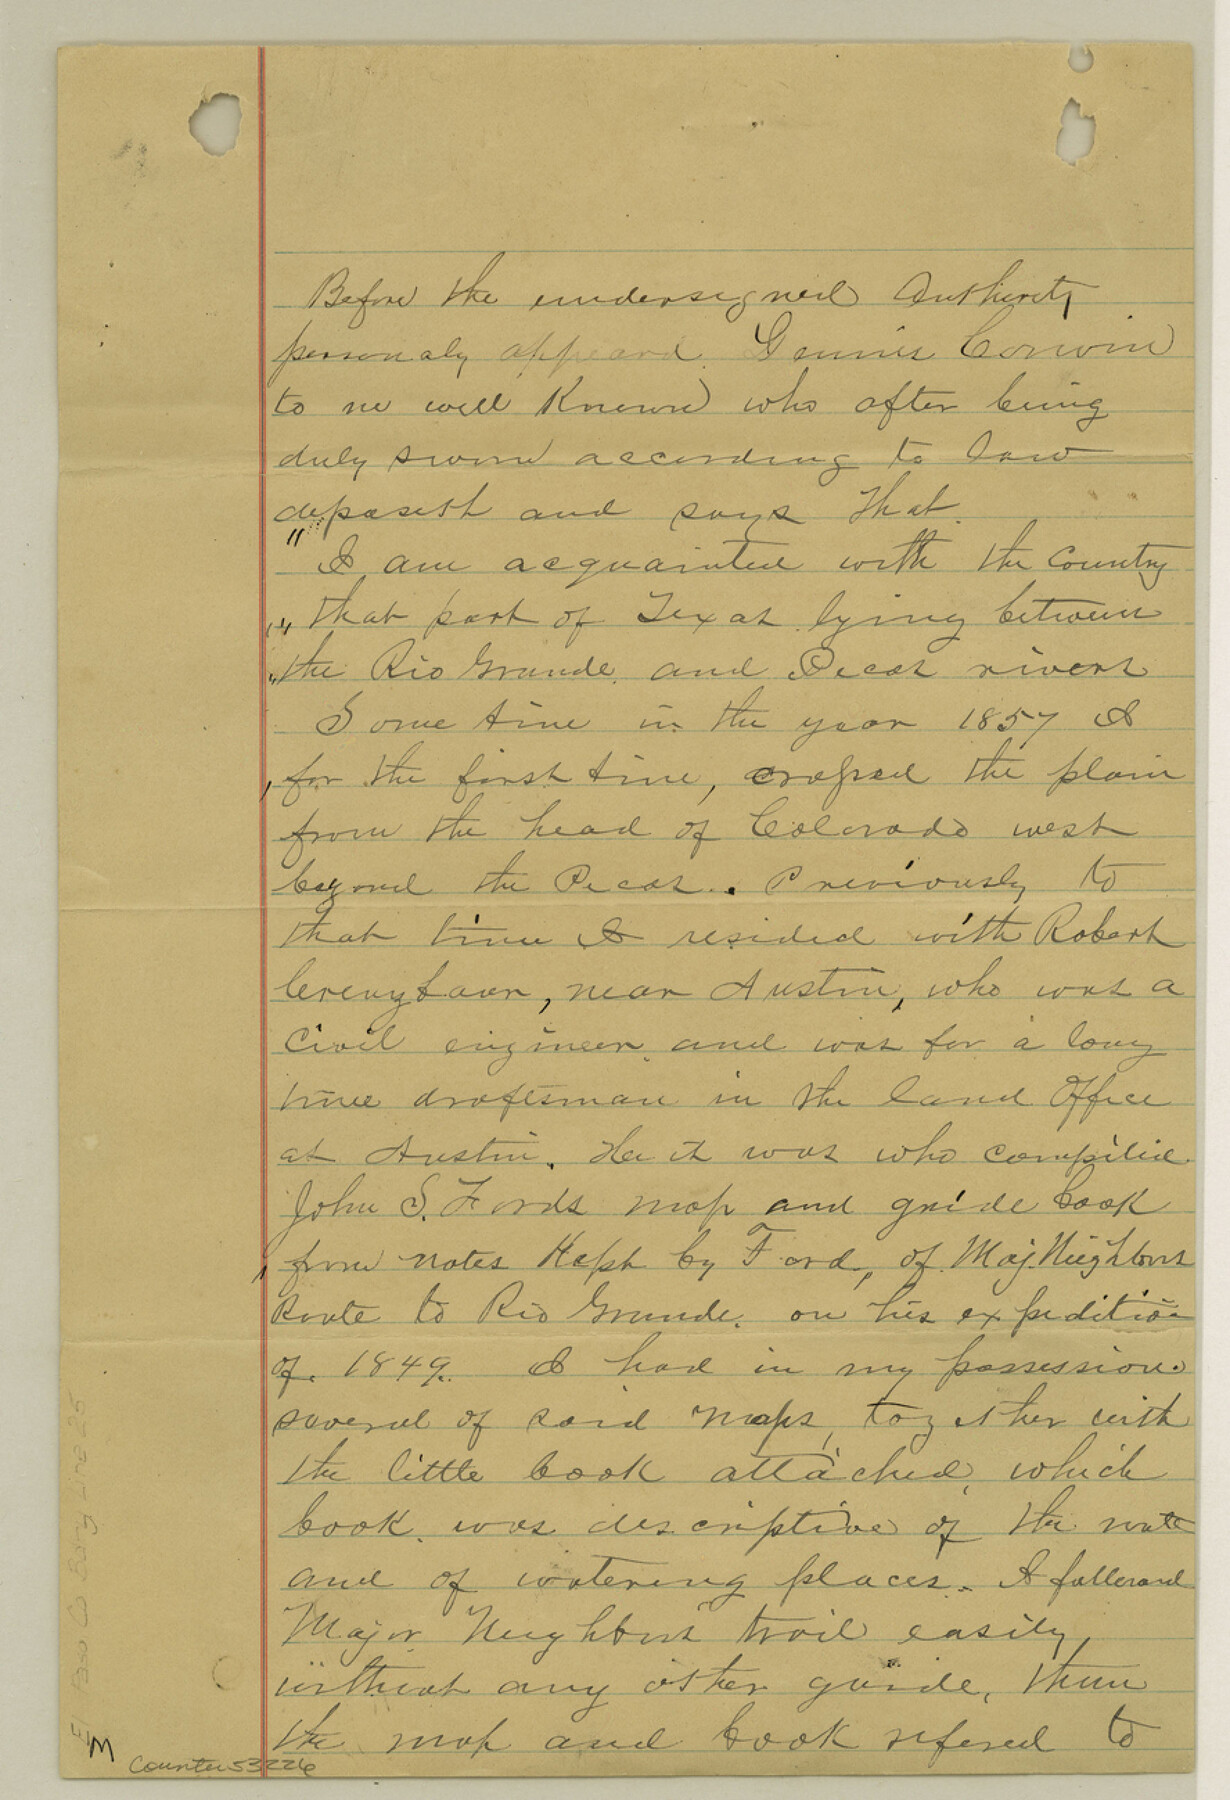 Before the undersigned Authority
personaly appeard. Dennis Corwin
to me well Known who after being
duly sworn according to law
deposeth and says that.
" I am acquainted with the country
" that part of Texas lying between
" the Rio Grande and Pecos rivers
Some time in the year 1857 I
for the first time, crossed the plain
from the head of Colorado west
beyond the Pecos. Previously to
that time I resided with Robert
Creuzbaur, near Austin, who was a
Civil engineer and was for a long
time draftsman in the land Office
at Austin. He it was who compiled
John S. Fords map and guide book
from notes Kept by Ford, of Maj. Neighbors
Route to Rio Grande. on his expedition
of. 1849. I had in my possession
several of said maps, together with
the little book attached, which
book. was descriptive of the route
and of watering places. I followed
Major Neighbors trail easily,
without any other guide, then
the map and book refered to
El Paso Co Bdry Line 25
M
Counter 53226